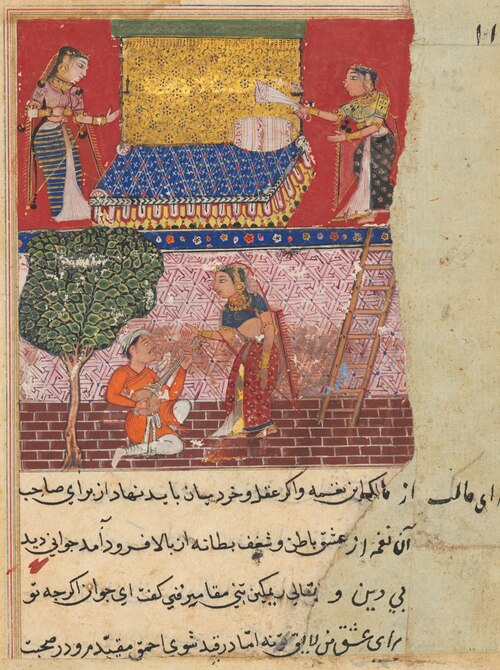 ۱۱
ای مالک از مالکان نفسه و اگر عقل و خرد بیان باید نهاد از برای صاحب
آن نغمه از عشق باطن و شغف بطانه از بالا فرود آمد جوانی دید
بی دین و بقالی
کفت ای جوان اکرچه تو
برای عشق من لایق نه اما در قید شوی احمق مقید مرو در صحبت